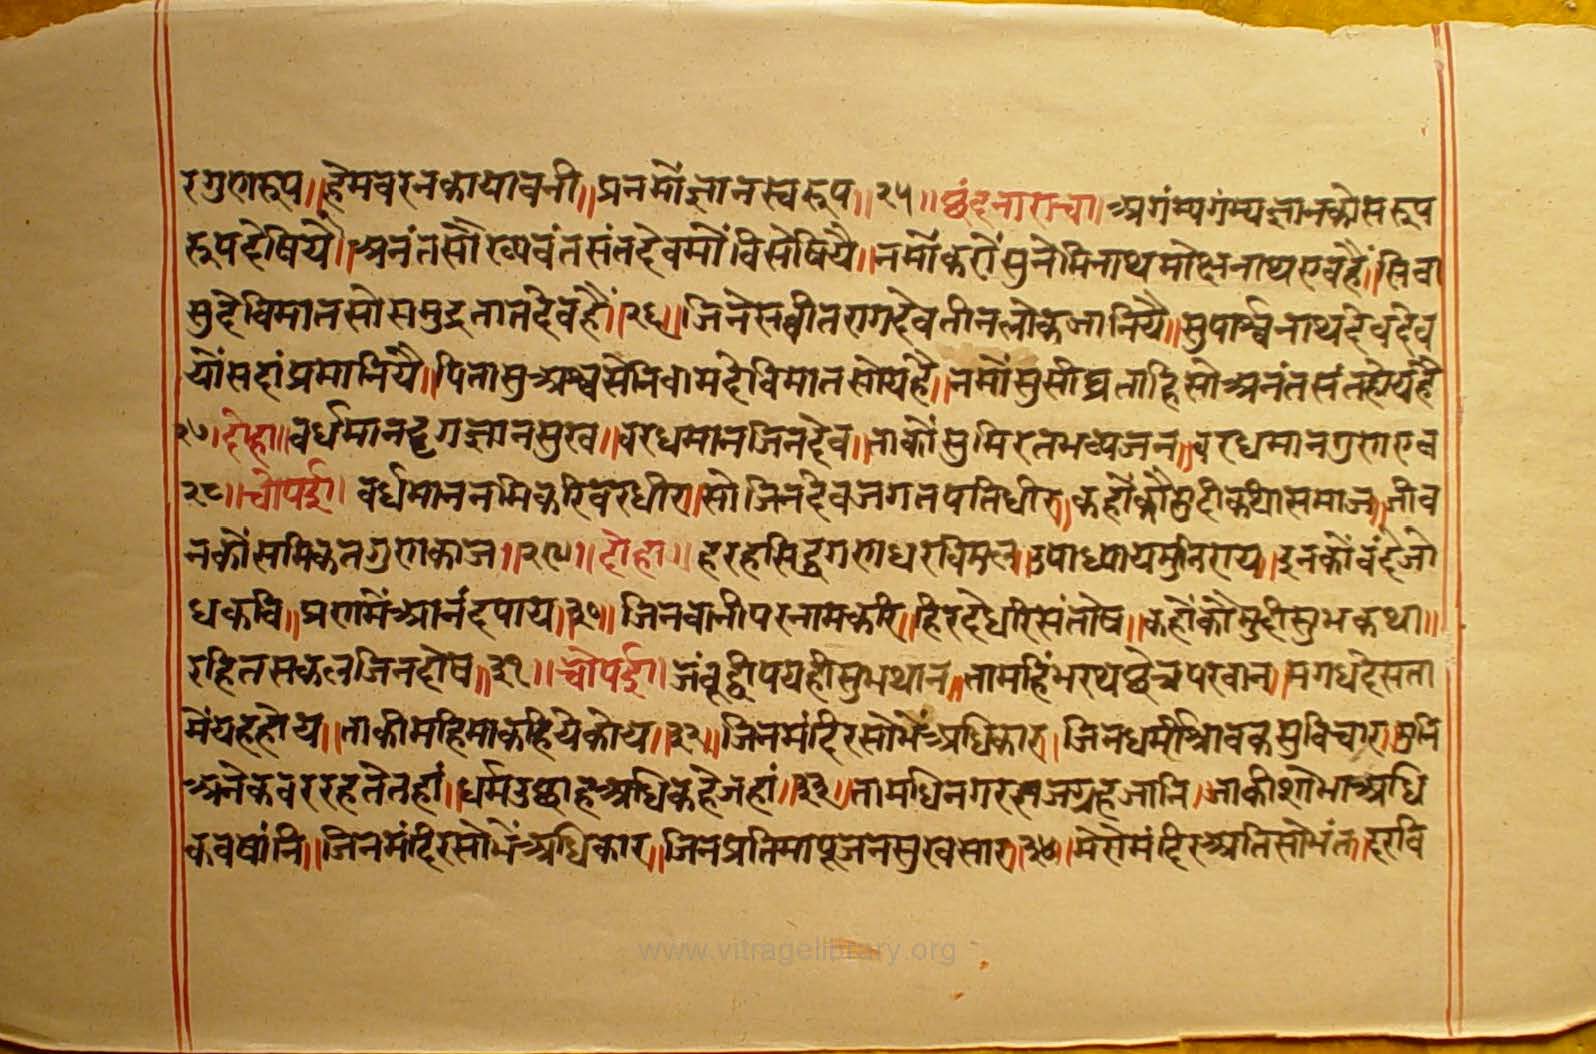 रगुणरूप॥हेमवरनकायावनी॥प्रनमौंज्ञानस्वरूप॥२५॥छंदनाराचा।अगंम्यगंम्यज्ञानकोसरूप
रूपदेषियै॥अनंतसौख्यवंतसंतदेवमौंविसेषियै॥नमौंकरौंसुनेमिनाथमोक्षनाथएवहैं॥सिवा
सुदेविमातसोसमुद्रतातदेवहैं॥२६॥जिनेसवीतरागदेवतीनलोकजानियै॥सुपार्श्वनाथदेवदेव
योंसहांप्रमानियै॥पितासुअश्वसेनिवामदेविमातसोयहै॥नमौंसुसीघ्रताहिसोअनंतसंतहोयहै
२७।दोहा॥वर्धमानदृगज्ञानसुख॥वरधमानजिनदेव॥ताकौंसुमिरतभव्यजन॥वरधमानगुणएव
२८॥चौपई॥वर्धमाननमिकरिवरधीरु॥सोजिनदेवजगतपतिधीरु॥कहौंकौमुदीकथासमाज॥जीव
नकौंसमिकतगुणकाज॥२९॥दोहा॥हरहसिद्धगणधरविमल।उपाध्यायमुनिराय॥इनकौंवंदैजो
धकवि॥प्रणमैंआनंदपाय॥३०॥जिनवानीपरनामकरि॥हिरदैधरिसंतोष॥कहौंकौमुदीसुभकथा॥
रहितसकलजिनदोष॥३१॥चौपई॥जंबूद्वीपयहीसुभथान॥तामहिंभरथछेत्रपरवान॥मगधदेसता
मेंयहहोय॥ताकीमहिमाकहियेकोय॥३२॥जिनमंदिरसोभैंअधिकारु।जिनधर्मीश्रावकसुविचारु॥मुनि
अनेकवररहतेतहां॥धर्मउछाहअधिकहैजहां॥३३॥तामधिनगरराजग्रहजानि।जाकीशोभाअधि
कवषांनि॥जिनमंदिरसोभैंअधिकार॥जिनप्रतिमापूजनसुखसारु॥३४॥मेरोमंदिरअतिसोभंत।दूरवि
www.vitragelibrary.org